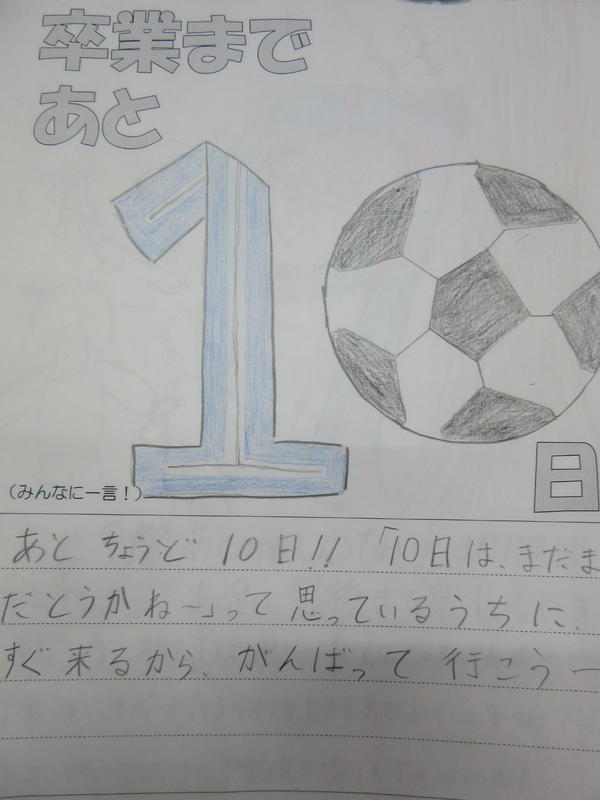 卒業まで
あと
10
日
(みんなに一言!)
あと ちょうど 10日!!「10日は、まだま
だとうかね〜」って思っているうちに、
すぐ来るから、がんばって行こうー